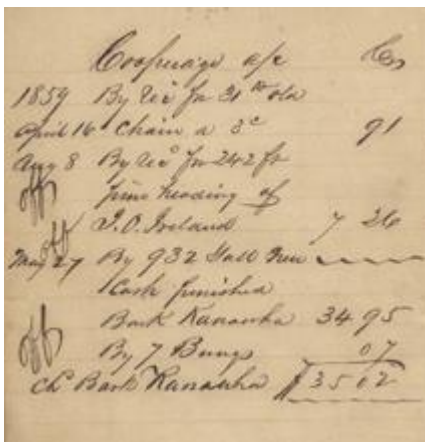 Cooperage a/c Cr
1859 By Rec for 31 lb old
April 16 Chain a 3c 91
Aug 8 By Rec for 242 ft
pine heading of
J.O. Ireland 7 26
May 27 By 932 Gall New
Cask furnished
Bark Kanawha 34 95
By 7 Bungs 07
Chd Bark Kanawha $35 02